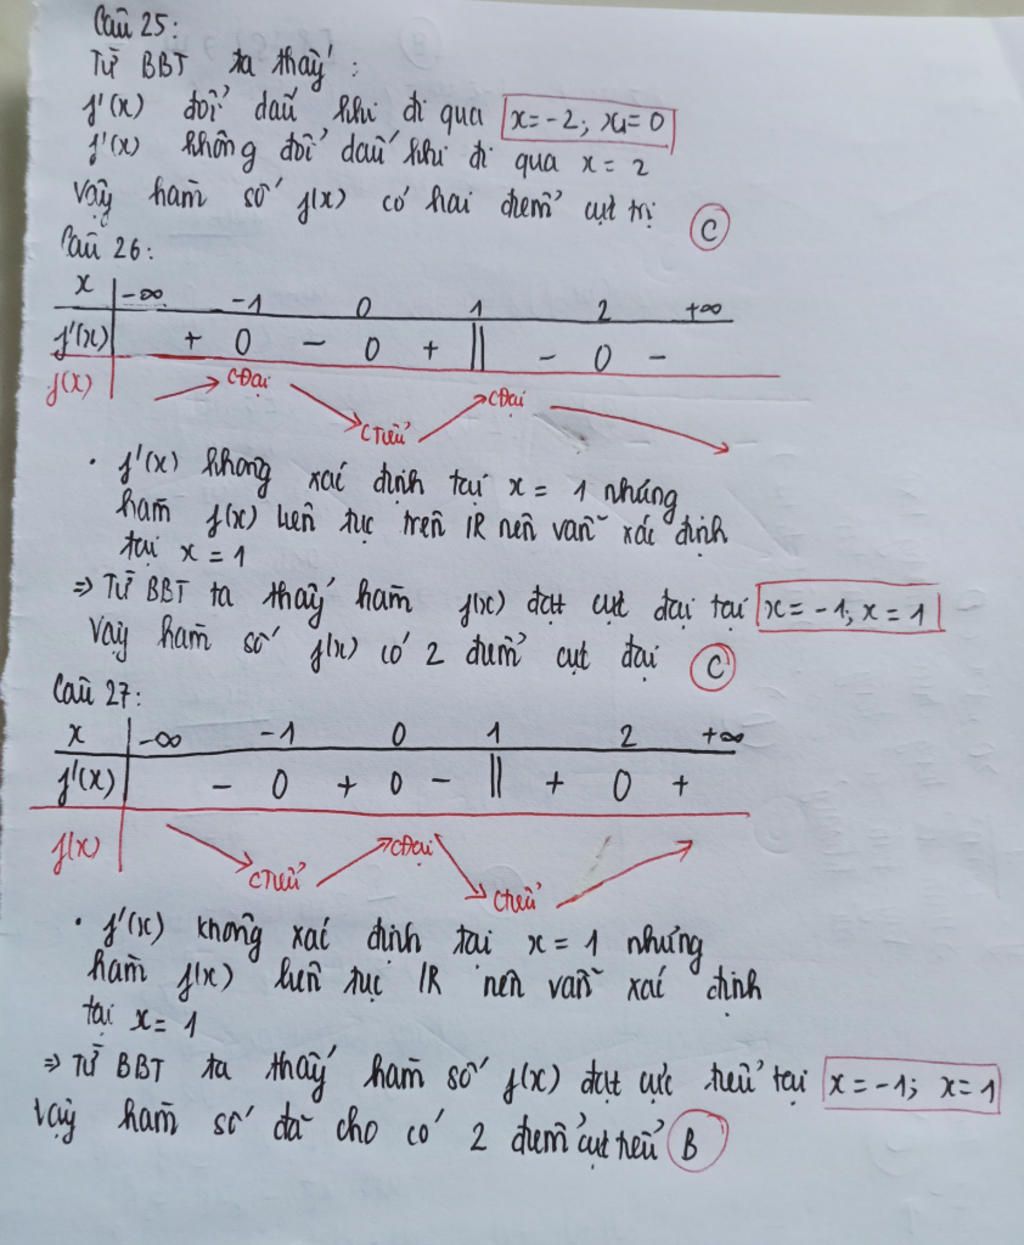 Câu 25:
Từ BBT ta thấy:
f'(x) đổi dấu khi đi qua x=-2; x=0
f'(x) không đổi dấu khi đi qua x = 2
vậy hàm số f(x) có hai điểm cực trị C
Câu 26:
x -∞ -1 0 1 2 +∞
f'(x) + 0 - 0 + || - 0 -
f(x) CĐại CTiểu CĐại
• f'(x) không xác định tại x = 1 nhưng
hàm f(x) liên tục trên IR nên vẫn xác định
tại x = 1
⇒ Từ BBT ta thấy hàm f(x) đạt cực đại tại x=-1; x=1
Vậy hàm số f(x) có 2 điểm cực đại C
Câu 27:
x -∞ -1 0 1 2 +∞
f'(x) - 0 + 0 - || + 0 +
f(x) CTiểu CĐại CTiểu
• f'(x) không xác định tại x = 1 nhưng
hàm f(x) liên tục IR nên vẫn xác định
tại x = 1
⇒ Từ BBT ta thấy hàm số f(x) đạt cực tiểu tại x=-1; x=1
Vậy hàm số đã cho có 2 điểm cực tiểu B